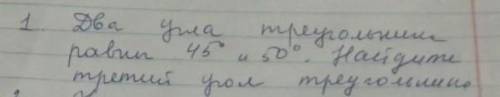 1. Два угла треугольника
равны 45° и 50°. Найдите
третий угол треугольника